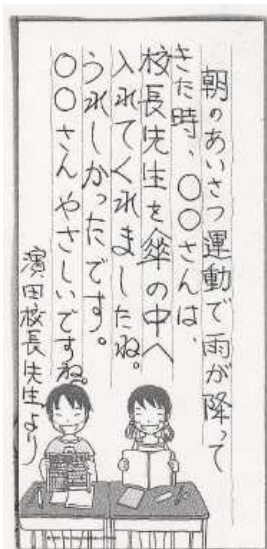 朝のあいさつ運動で雨が降って
きた時、〇〇さんは、
校長先生を傘の中へ
入れてくれましたね。
うれしかったです。
〇〇さんやさしいですね。
濱田校長先生より